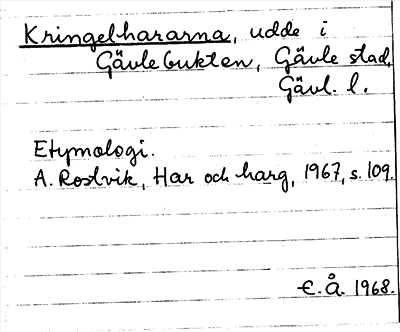 Kringelhararna, udde i
Gävlebukten, Gävle stad,
Gävl. l.
Etymologi.
A. Rostvik, Har och harg, 1967, s. 109.
E. Å. 1968.